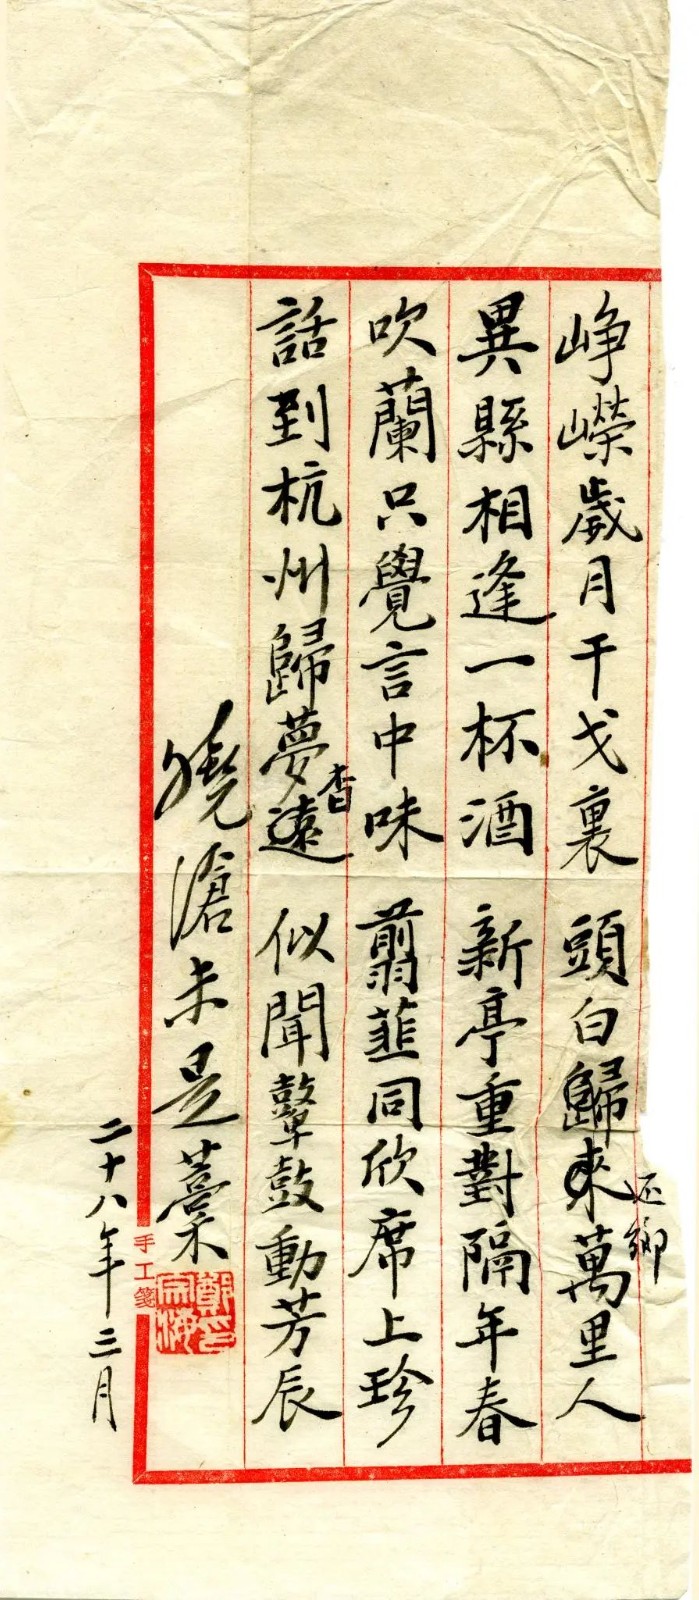 崢嶸歲月干戈裏 頭白歸來萬里人
还鄉
異縣相逢一杯酒 新亭重對隔年春
吹蘭只覺言中味 翦韮同欣席上珍
話到杭州歸夢遠 似聞鼙鼓動芳辰
杳
曉滄未是藁
鄭宗海印
二十八年三月
手工箋